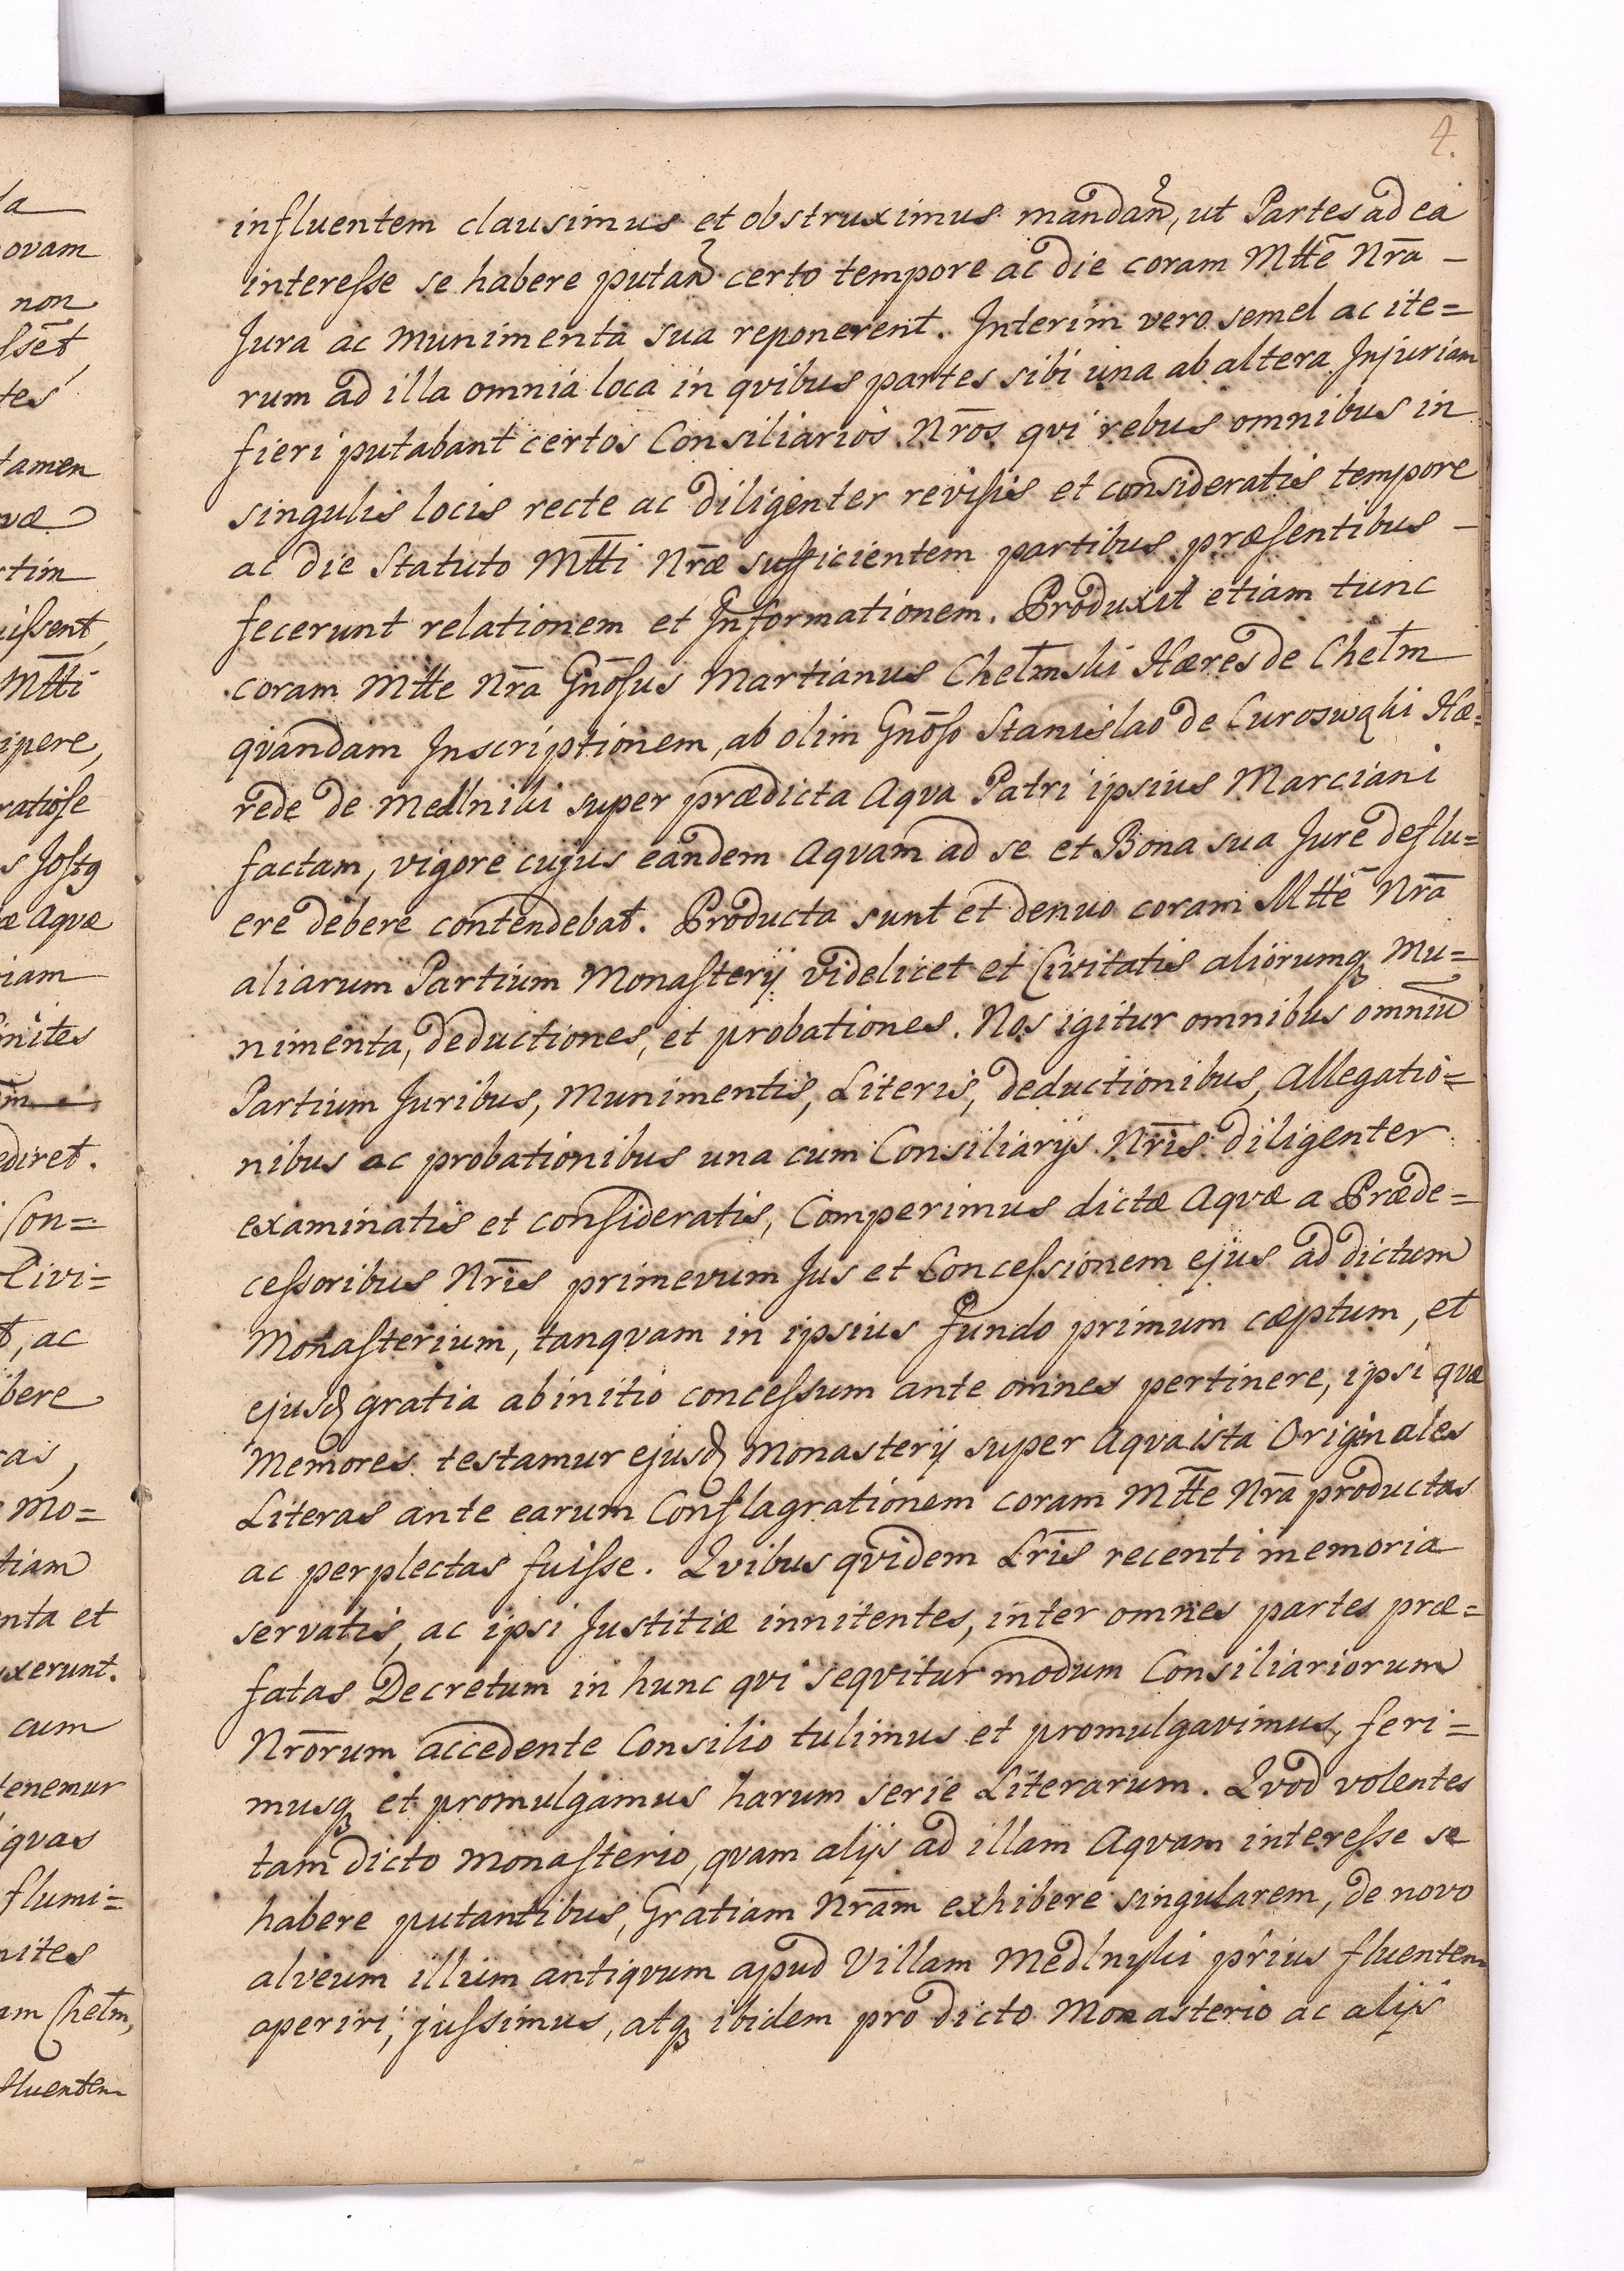 4.
influentem clausimus et obstruximus mandan̄, ut Partes ad ea
interesse se habere putan̄ certo tempore ac die coram Mtte Nrā –
Jura ac Munimenta sua reponerent. Interim vero semel ac ite=
rum ad illa omnia loca in qvibus partes sibi una ab altera Injuriam
fieri putabant certos Consiliarios Nrōs qvi rebus omnibus in
singulis locis recte ac diligenter revisis et consideratis tempore
ac die Statuto Mtti Nræ sufficientem partibus præsentibus –
fecerunt relationem et Informationem. Produxit etiam tunc
coram Mtte Nrā Gnōsus Martianus Chełmski Hæres de Chełm
qvandam Inscriptionem, ab olim Gnōso Stanislao de Curoswąki Hæ=
rede de Medlniki super prædicta Aqva Patri ipsius Marciani
factam, vigore cujus eandem Aqvam ad se et Bona sua Jure deflu=
ere debere contendebat. Producta sunt et denuo coram Mtte Nrā
aliarum Partium Monasterij videlicet et Civitatis aliorumqȝ Mu=
nimenta, deductiones, et probationes. Nos igitur omnibus omniū
Partium Juribus, Munimentis, Literis, deductionibus, Allegatio=
nibus ac probationibus una cum Consiliarijs Nrīs diligenter
examinatis et consideratis, Comperimus dictæ Aqvæ a Præde=
cessoribus Nrīs primevum Jus et Concessionem ejus ad dictum
Monasterium, tanqvam in ipsius fundo primum cæptum, et
ejusd gratia ab initio concessum ante omnes pertinere, ipsi qvæ
Memores testamur ejusd Monasterij super Aqva ista Originales
Literas ante earum Conflagrationem coram Mtte Nrā productas
ac perplectas fuisse. Qvibus qvidem Lrīs recenti memoria
servatis, ac ipsi Justitiæ innitentes, inter omnes partes præ=
fatas Decretum in hunc qvi seqvitur modum Consiliariorum
Nrōrum accedente Consilio tulimus et promulgavimus, feri=
musqȝ et promulgamus harum serie Literarum. Qvod volentes
tam dicto Monasterio, qvam alijs ad illam Aqvam interesse se
habere putantibus, Gratiam Nrām exhibere singularem, de novo
alveum illum antiqvum apud Villam Medlnyki prius fluentem
aperiri, jussimus, atqȝ ibidem pro dicto Monasterio ac alijs